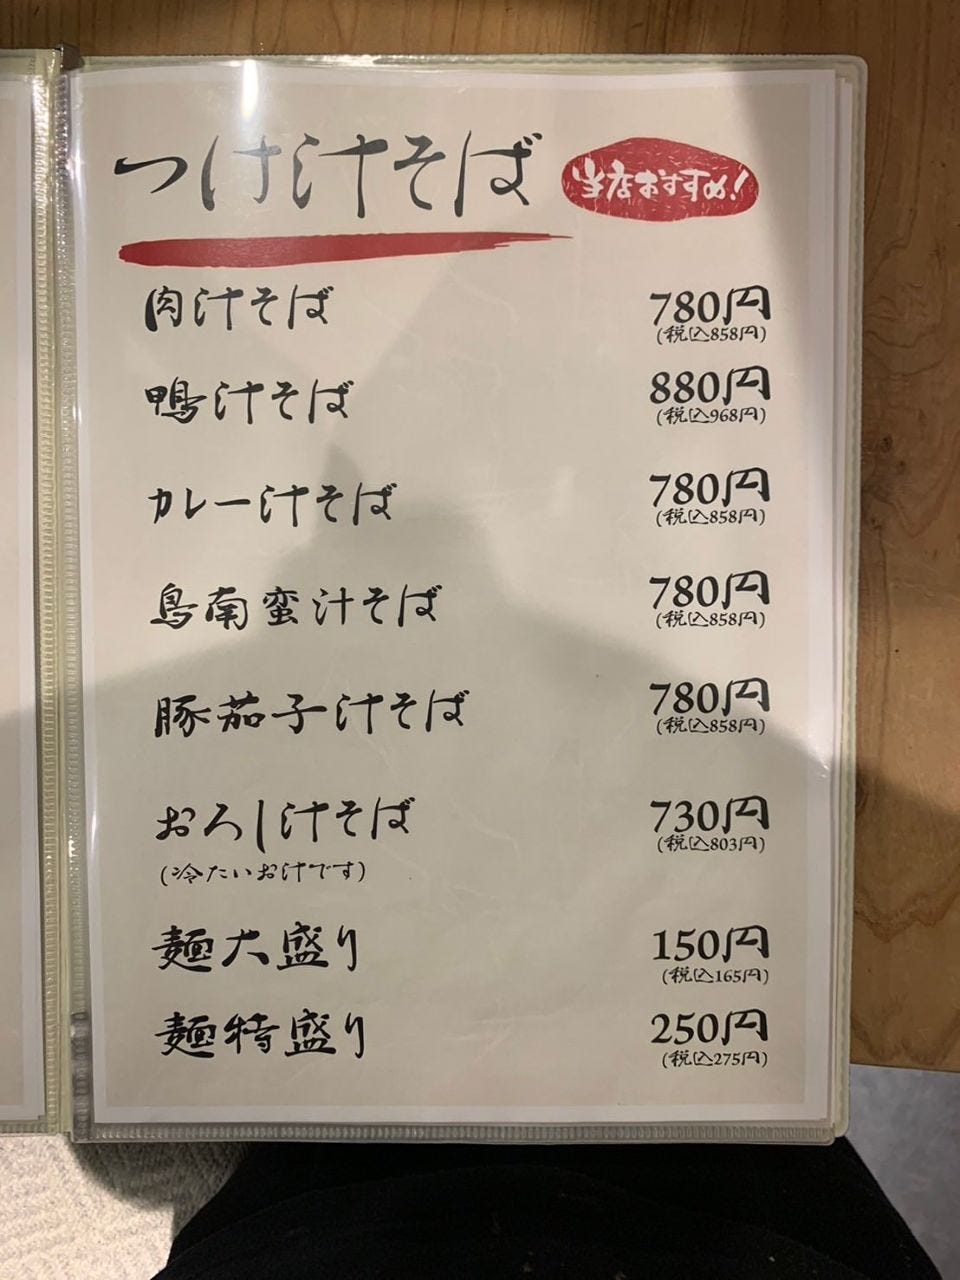 つけ汁そば 当店おすすめ!
肉汁そば 780円
(税込858円)
鴨汁そば 880円
(税込968円)
カレー汁そば 780円
(税込858円)
鳥南蛮汁そば 780円
(税込858円)
豚茄子汁そば 780円
(税込858円)
おろし汁そば 730円
(税込803円)
(冷たいお汁です)
麺大盛り 150円
(税込165円)
麺特盛り 250円
(税込275円)